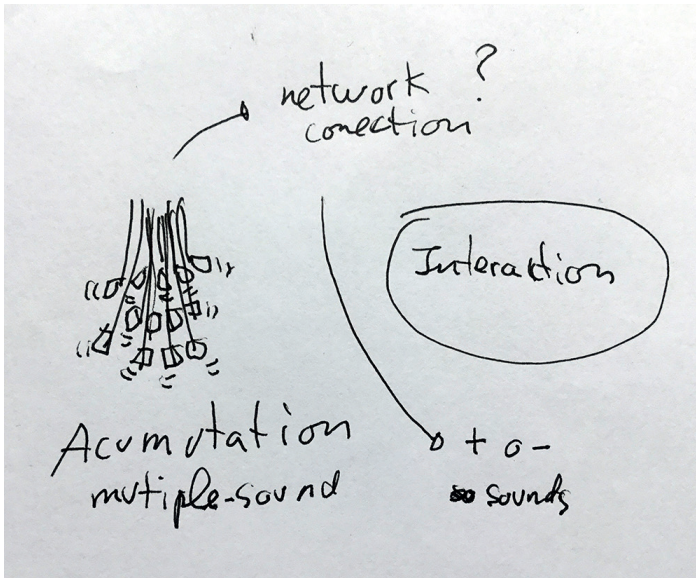 network ?
conection
Interaktion
Acumutation
mutiple-sound
+ o -
sounds